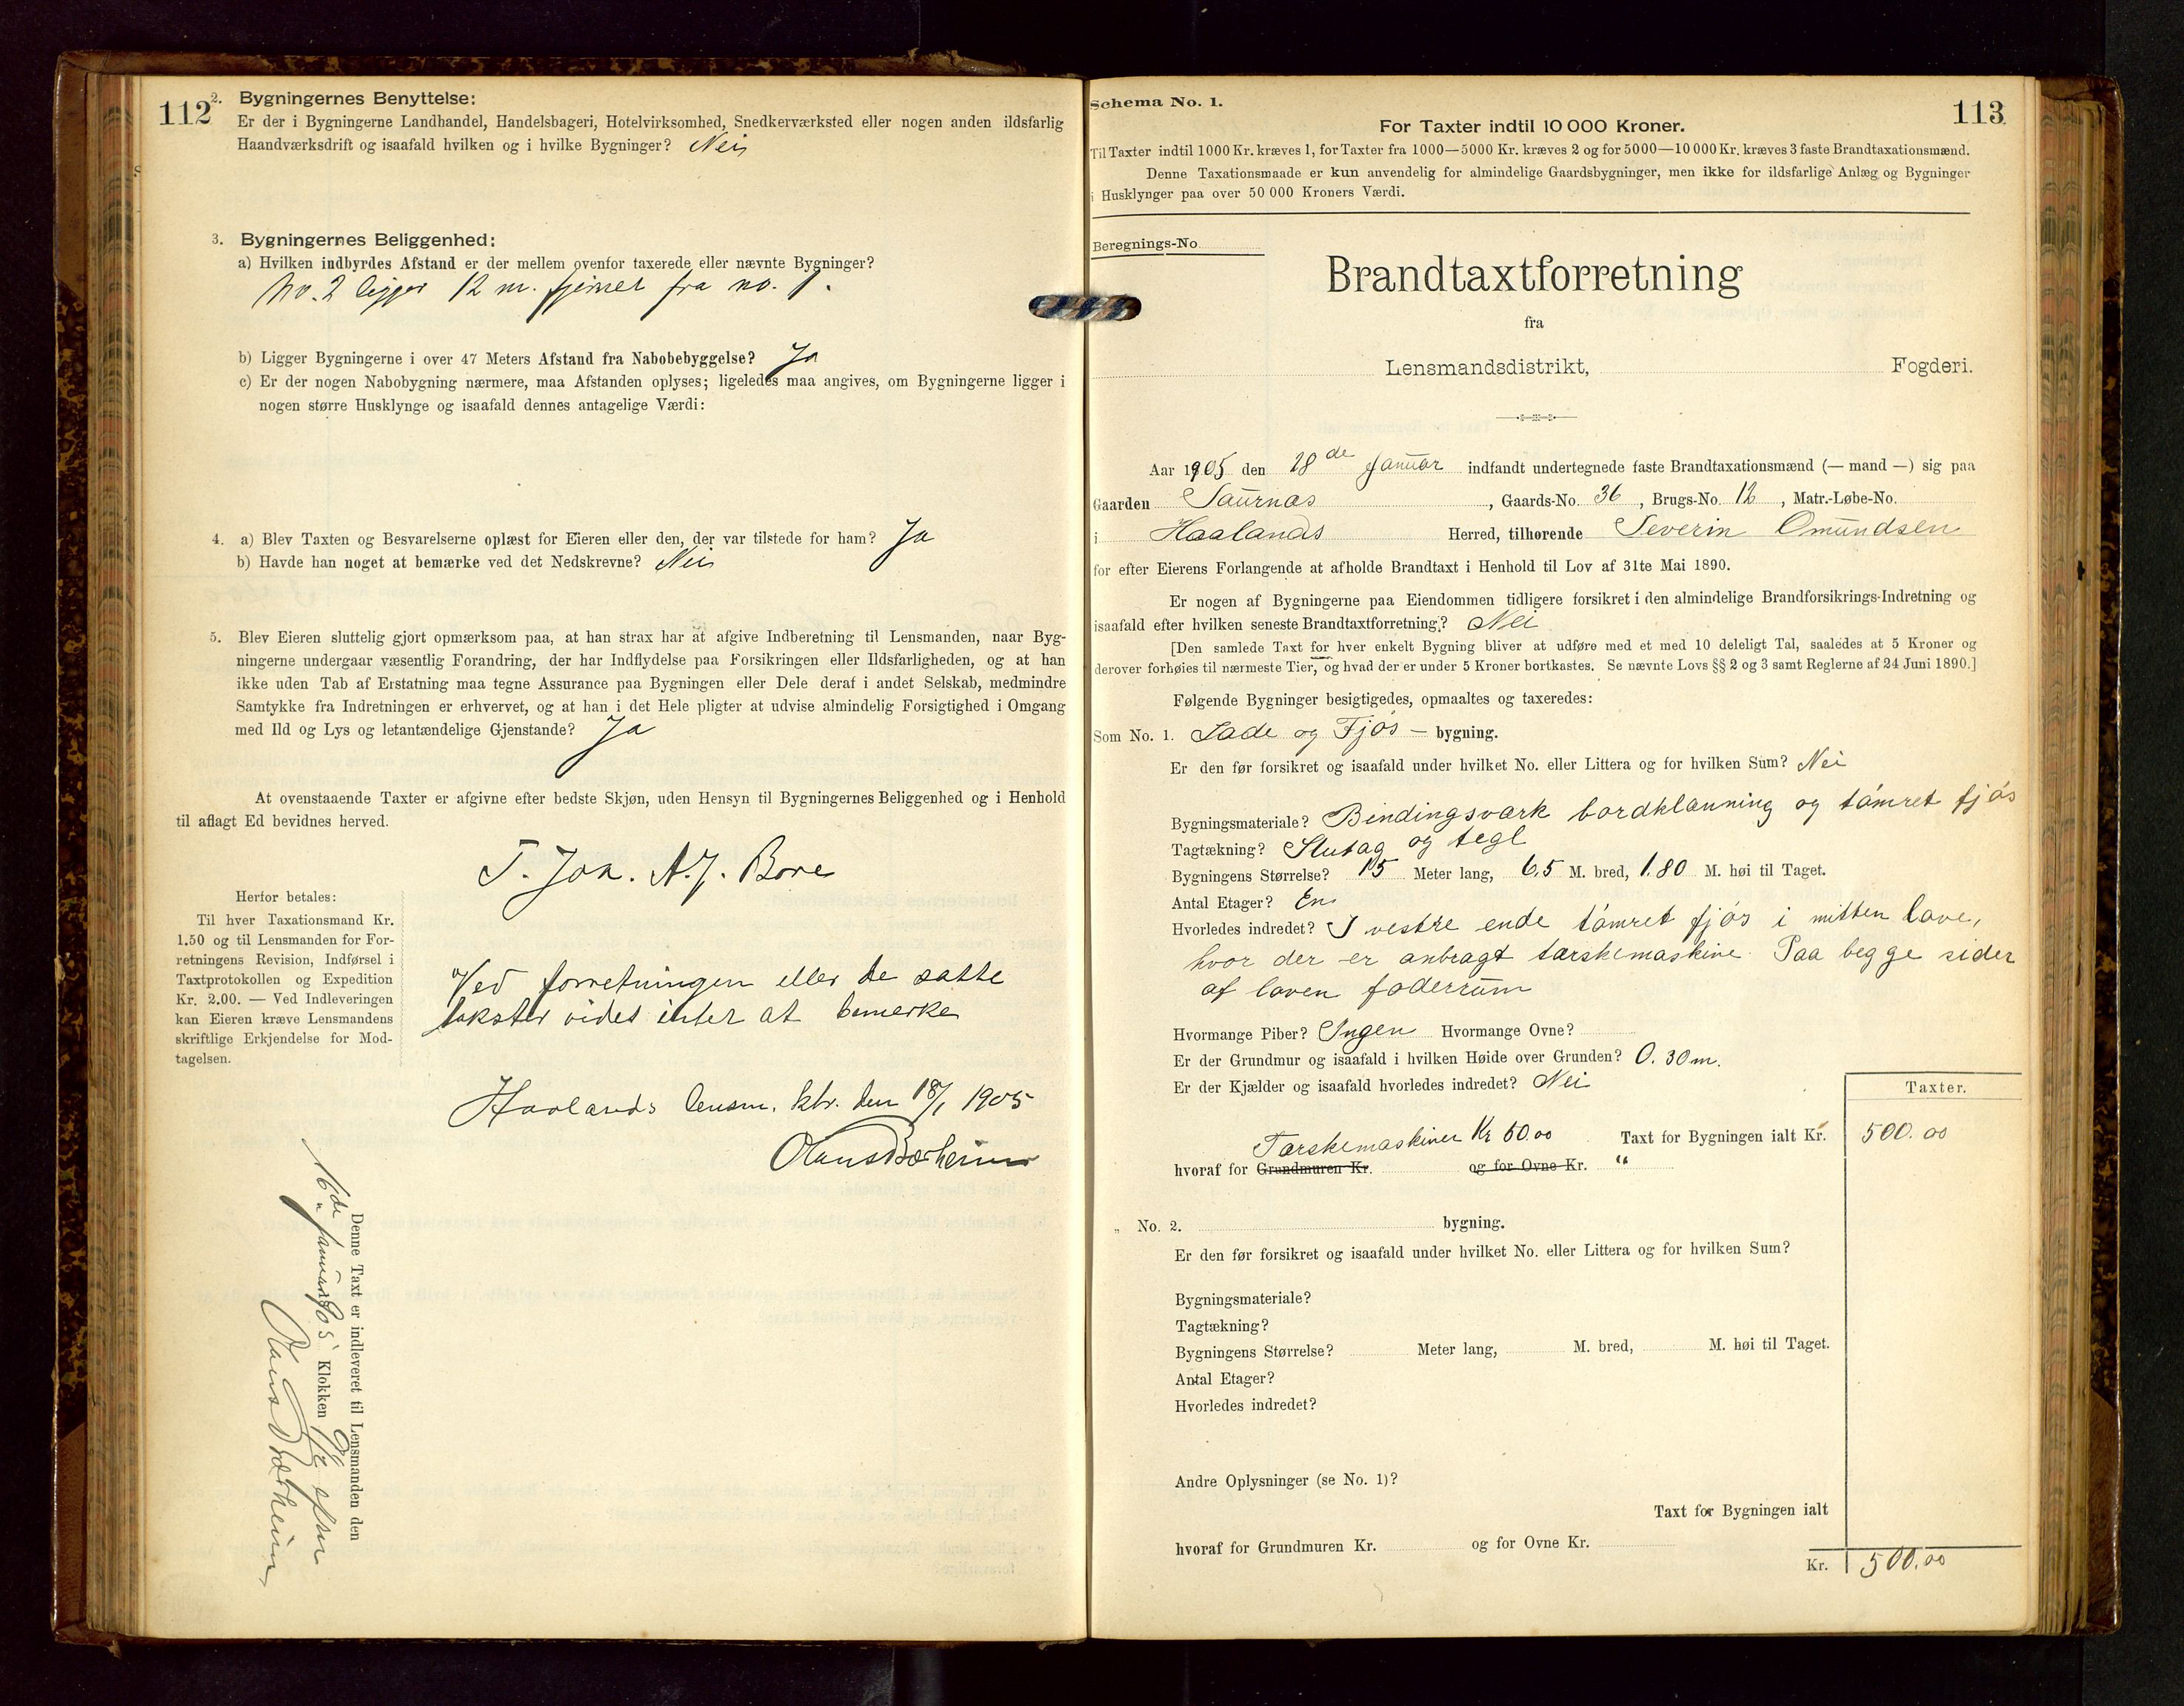 112
2. Bygningernes Benyttelse:
Er der i Bygningerne Landhandel, Handelsbageri, Hotelvirksomhed, Snedkerværksted eller nogen anden ildsfarlig
Haandværksdrift og isaafald hvilken og i hvilke Bygninger? Nei
3. Bygningernes Beliggenhed:
a) Hvilken indbyrdes Afstand er der mellem ovenfor taxerede eller nævnte Bygninger?
No. 2 ligger 12 m. fjernet fra no. 1.
b) Ligger Bygningerne i over 47 Meters Afstand fra Nabobebyggelse? Ja
c) Er der nogen Nabobygning nærmere, maa Afstanden oplyses; ligeledes maa angives, om Bygningerne ligger i
nogen større Husklynge og isaafald dennes antagelige Værdi:
4. a) Blev Taxten og Besvarelserne oplæst for Eieren eller den, der var tilstede for ham? Ja
b) Havde han noget at bemærke ved det Nedskrevne? Nei
5. Blev Eieren sluttelig gjort opmærksom paa, at han strax har at afgive Indberetning til Lensmanden, naar Byg-
ningerne undergaar væsentlig Forandring, der har Indflydelse paa Forsikringen eller Ildsfarligheden, og at han
ikke uden Tab af Erstatning maa tegne Assurance paa Bygningen eller Dele deraf i andet Selskab, medmindre
Samtykke fra Indretningen er erhvervet, og at han i det Hele pligter at udvise almindelig Forsigtighed i Omgang
med Ild og Lys og letantændelige Gjenstande? Ja
At ovenstaaende Taxter er afgivne efter bedste Skjøn, uden Hensyn til Bygningernes Beliggenhed og i Henhold
til aflagt Ed bevidnes herved.
T. Joa. A. J. Bore
Herfor betales:
Til hver Taxationsmand Kr.
1.50 og til Lensmanden for For-
retningens Revision, Indførsel i
Taxtprotokollen og Expedition
Kr. 2.00. — Ved Indleveringen
kan Eieren kræve Lensmandens
skriftlige Erkjendelse for Mod-
tagelsen.
Ved forretningen eller de satte
takster vides intet at bemerke
Haalands lensm. ktr. den 18/1 1905
Olaus Bærheim
Denne Taxt er indleveret til Lensmanden den
16de Januar 1905 Klokken efter
Olaus Bærheim
Schema No. 1.
113
For Taxter indtil 10 000 Kroner.
Til Taxter indtil 1000 Kr. kræves 1, for Taxter fra 1000—5000 Kr. kræves 2 og for 5000—10 000 Kr. kræves 3 faste Brandtaxationsmænd.
Denne Taxationsmaade er kun anvendelig for almindelige Gaardsbygninger, men ikke for ildsfarlige Anlæg og Bygninger
i Husklynger paa over 50 000 Kroners Værdi.
Beregnings-No.
Brandtaxtforretning
fra
Lensmandsdistrikt, Fogderi.
Aar 1905 den 18de Januar indfandt undertegnede faste Brandtaxationsmænd (— mand —) sig paa
Gaarden Saurnas, Gaards-No. 36, Brugs-No. 12, Matr.-Løbe-No.
i Haalands Herred, tilhørende Severin Omundsen
for efter Eierens Forlangende at afholde Brandtaxt i Henhold til Lov af 31te Mai 1890.
Er nogen af Bygningerne paa Eiendommen tidligere forsikret i den almindelige Brandforsikrings-Indretning og
isaafald efter hvilken seneste Brandtaxtforretning? Nei
[Den samlede Taxt for hver enkelt Bygning bliver at udføre med et med 10 deleligt Tal, saaledes at 5 Kroner og
derover forhøies til nærmeste Tier, og hvad der er under 5 Kroner bortkastes. Se nævnte Lovs §§ 2 og 3 samt Reglerne af 24 Juni 1890.]
Følgende Bygninger besigtigedes, opmaaltes og taxeredes:
Som No. 1. Lade og Fjøs — bygning.
Er den før forsikret og isaafald under hvilket No. eller Littera og for hvilken Sum? Nei
Bygningsmateriale? Bindingsværk bordklædning og tømret fjøs
Tagtækning? og tegl
Bygningens Størrelse? 15 Meter lang, 6,5 M. bred, 1.80 M. høi til Taget.
Antal Etager? En
Hvorledes indredet? I vestre ende tømret fjøs i mitten lave,
hvor der er anbragt tærskemaskine. Paa begge sider
af laven foderrum
Hvormange Piber? Ingen Hvormange Ovne?
Er der Grundmur og isaafald i hvilken Høide over Grunden? 0.30 m.
Er der Kjælder og isaafald hvorledes indredet? Nei
Taxter.
Tærskemaskinen Kr 50.00 Taxt for Bygningen ialt Kr. 500.00
hvoraf for Grundmuren Kr. og for Ovne Kr. "
„ No. 2. bygning.
Er den før forsikret og isaafald under hvilket No. eller Littera og for hvilken Sum?
Bygningsmateriale?
Tagtækning?
Bygningens Størrelse? Meter lang, M. bred, M. høi til Taget.
Antal Etager?
Hvorledes indredet?
Andre Oplysninger (se No. 1)?
Taxt for Bygningen ialt
hvoraf for Grundmuren Kr. og for Ovne Kr.
Kr. 500.00